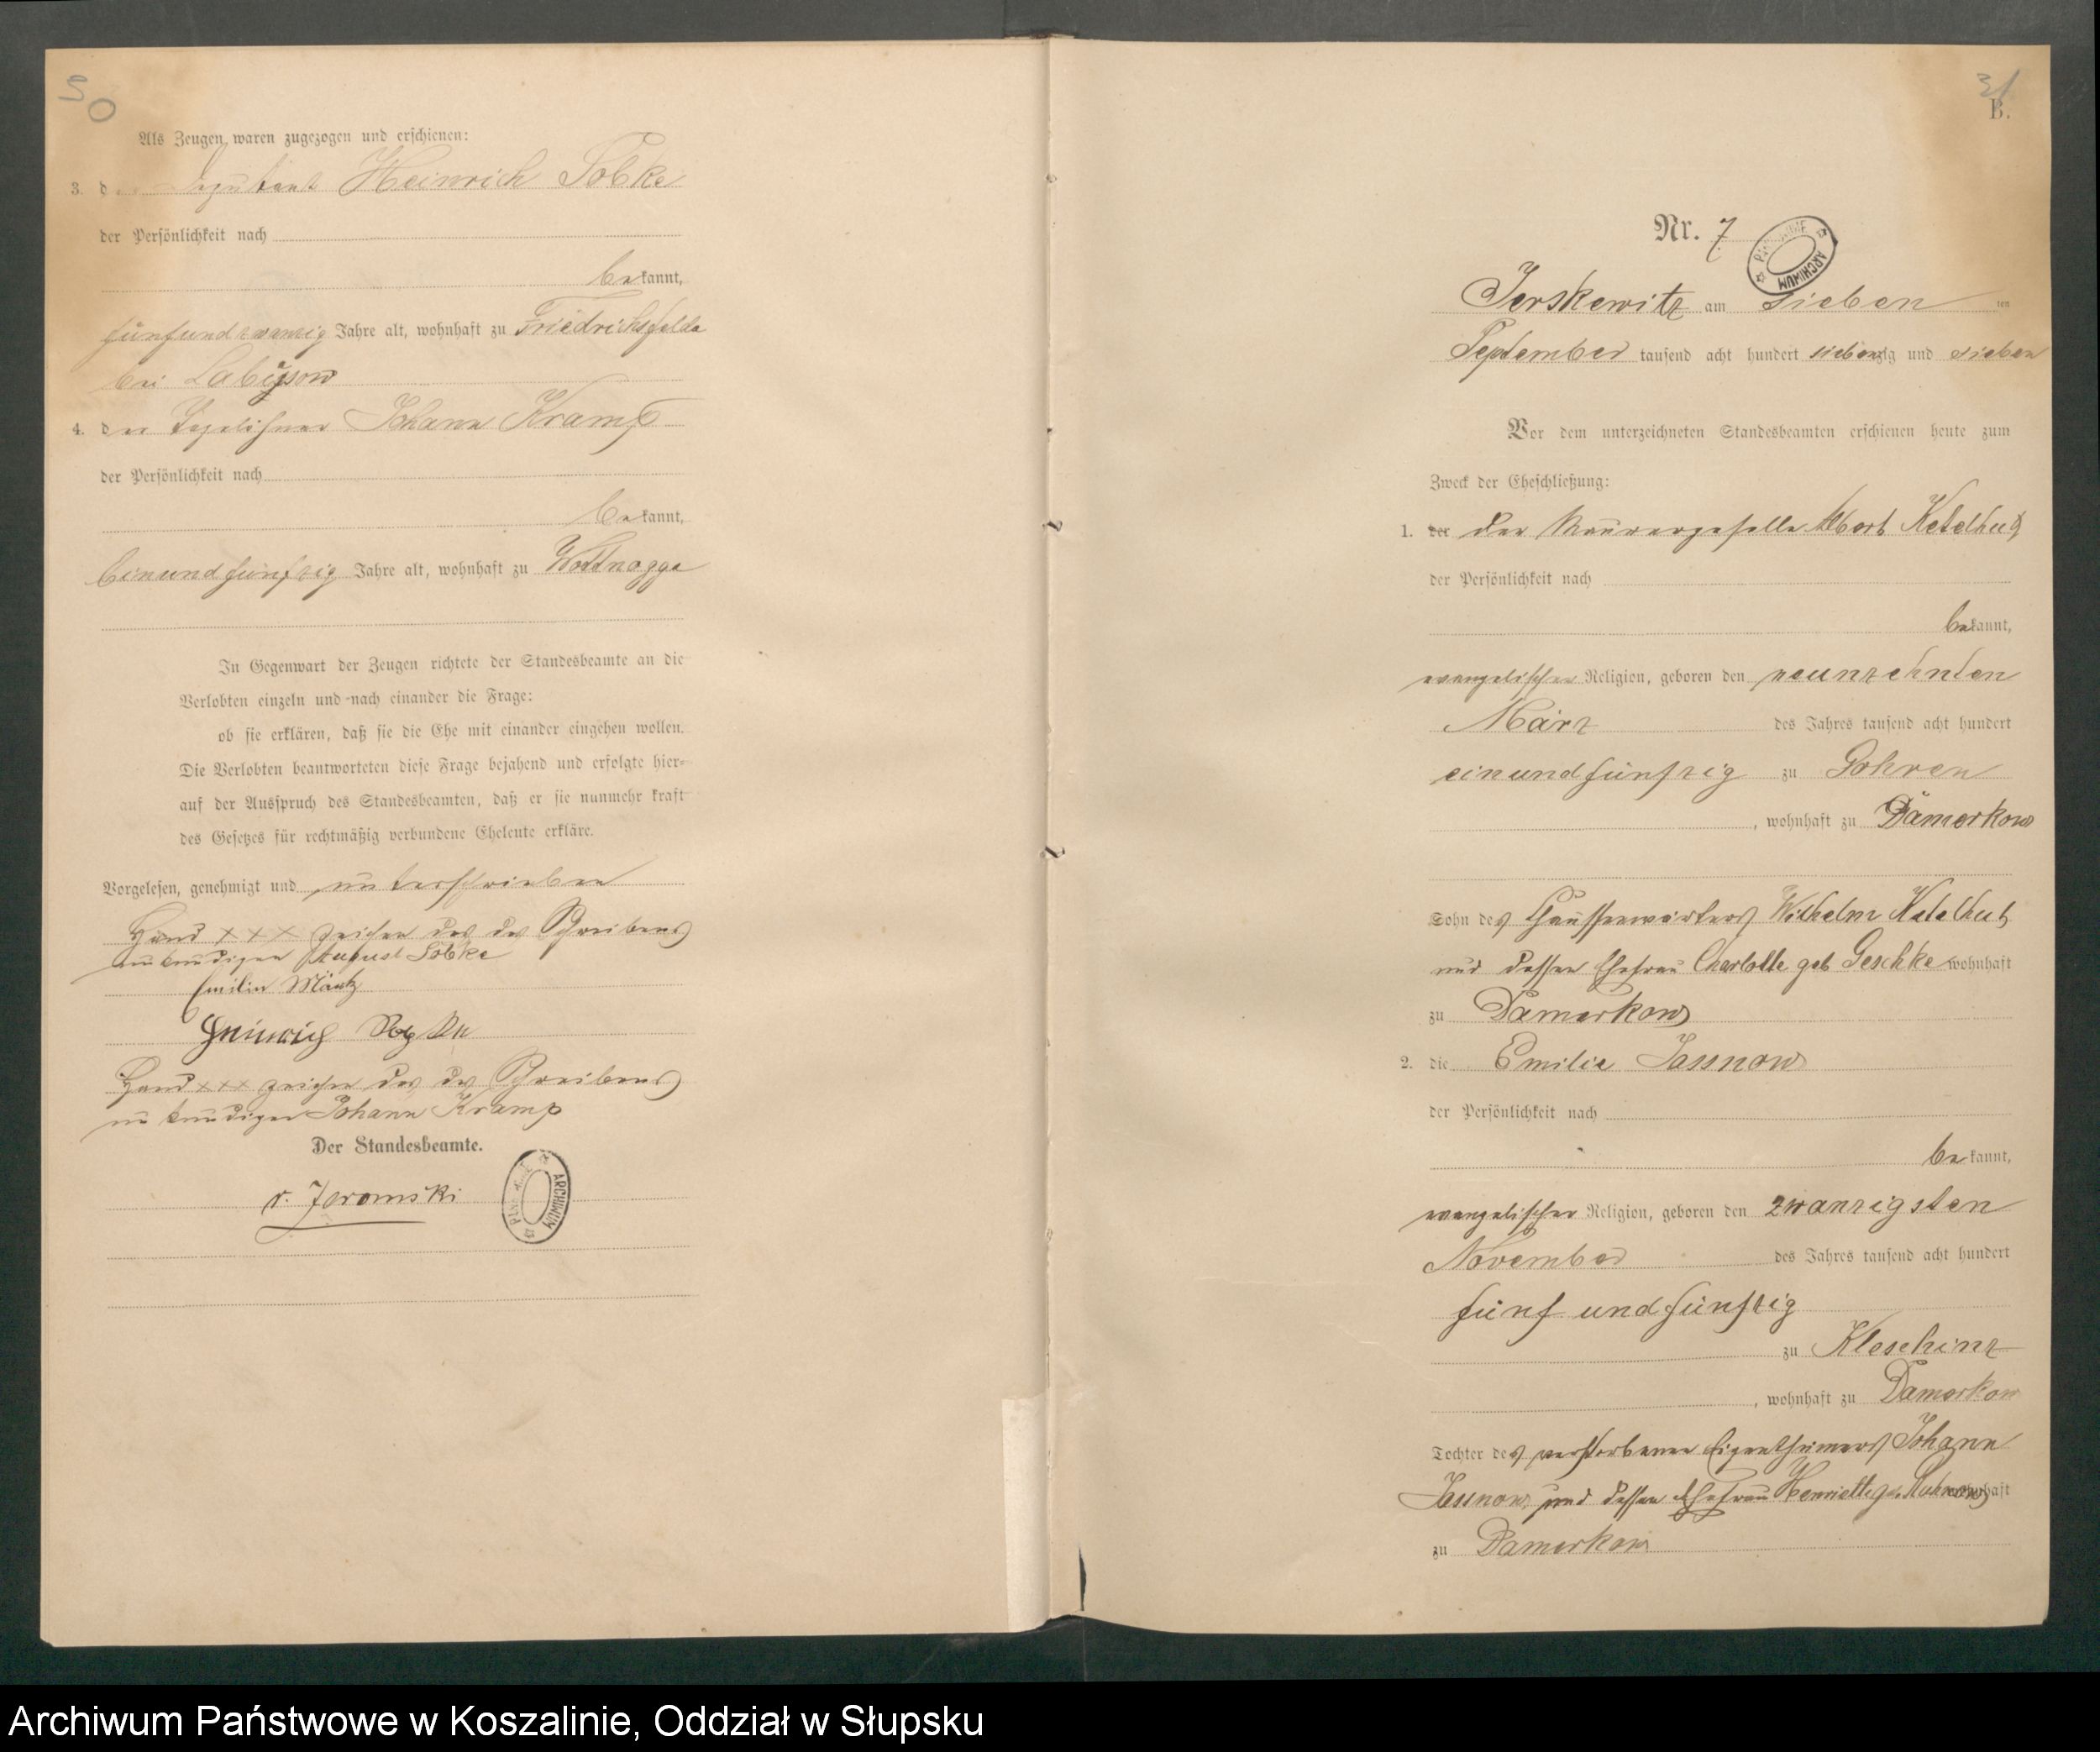 30
Als Zeugen waren zugezogen und erschienen:
3. d Deputant Heinrich Sobke
der Persönlichkeit nach
bekannt,
fünfundzwanzig Jahre alt, wohnhaft zu Friedrichsfelde
bei Labüssow
4. der Tagelöhner Johann Kramp
der Persönlichkeit nach
bekannt,
einundfünfzig Jahre alt, wohnhaft zu Wottnogge
In Gegenwart der Zeugen richtete der Standesbeamte an die
Verlobten einzeln und nach einander die Frage:
ob sie erklären, daß sie die Ehe mit einander eingehen wollen.
Die Verlobten beantworteten diese Frage bejahend und erfolgte hier-
auf der Ausspruch des Standesbeamten, daß er sie nunmehr kraft
des Gesetzes für rechtmäßig verbundene Eheleute erkläre.
Vorgelesen, genehmigt und unterschrieben
Hand xxx zeichen des des Schreibens
unkundigen August Sobke
Emilie Mantz
Heinrich
Hand xxx zeichen des des Schreibens
unkundigen Johann Kramp
Der Standesbeamte.
v. Jeromski
ARCHIWUM
31
B.
Nr. 7
ARCHIWUM
Jerskewitz am sieben ten
September tausend acht hundert siebenzig und sieben
Vor dem unterzeichneten Standesbeamten erschienen heute zum
Zweck der Eheschließung:
1. der der Maurergeselle Albert Ketelhut
der Persönlichkeit nach
bekannt,
evangelischer Religion, geboren den neunzehnten
März des Jahres tausend acht hundert
einundfünfzig zu Gohren
, wohnhaft zu Damerkow
Sohn des Chausseewärters Wilhelm Ketelhut
und dessen Ehefrau Charlotte geb Geschke wohnhaft
zu Damerkow
2. die Emilie Jassnow
der Persönlichkeit nach
bekannt,
evangelischer Religion, geboren den zwanzigsten
November des Jahres tausend acht hundert
fünf und fünfzig
zu Kleschinz
, wohnhaft zu Damerkow
Tochter des verstorbenen Eigenthümers Johann
Jassnow und dessen Ehefrau Henriette geb. wohnhaft
zu Damerkow
Archiwum Państwowe w Koszalinie, Oddział w Słupsku